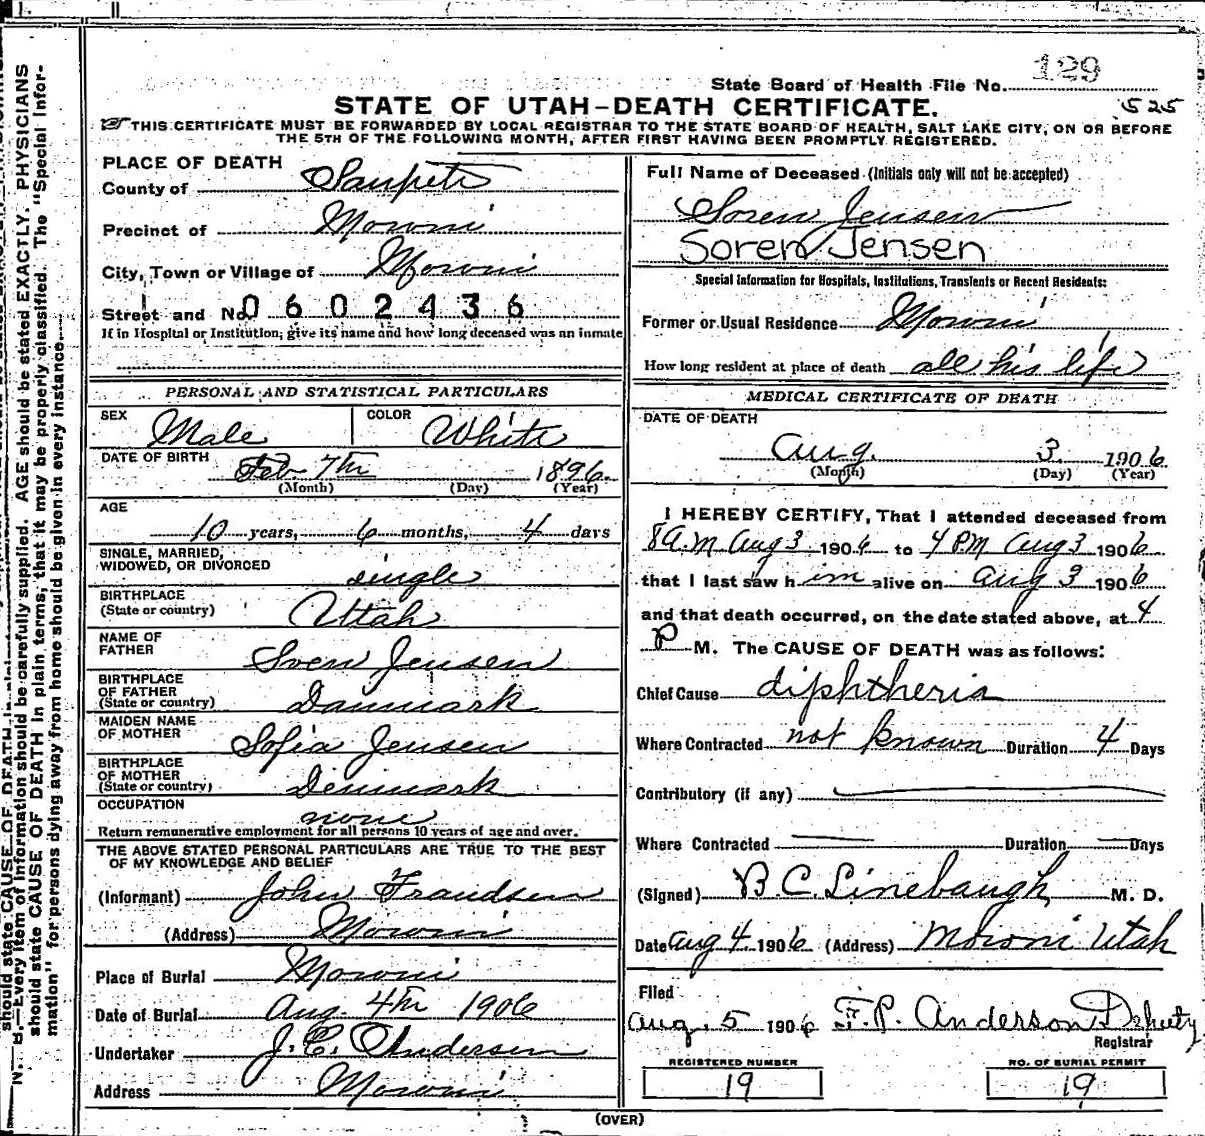 State Board of Health File No. 129
STATE OF UTAH—DEATH CERTIFICATE.
525
THIS CERTIFICATE MUST BE FORWARDED BY LOCAL REGISTRAR TO THE STATE BOARD OF HEALTH, SALT LAKE CITY, ON OR BEFORE
THE 5TH OF THE FOLLOWING MONTH, AFTER FIRST HAVING BEEN PROMPTLY REGISTERED.
PLACE OF DEATH
County of Sanpete
Precinct of Moroni
City, Town or Village of Moroni
Street and No. 0602436
If in Hospital or Institution, give its name and how long deceased was an inmate
PERSONAL AND STATISTICAL PARTICULARS
SEX Male COLOR White
DATE OF BIRTH Feb. 7th 1896
(Month) (Day) (Year)
AGE
10 years, 6 months, 4 days
SINGLE, MARRIED,
WIDOWED, OR DIVORCED single
BIRTHPLACE
(State or country) Uttah
NAME OF
FATHER Sven Jensen
BIRTHPLACE
OF FATHER
(State or country) Danmark
MAIDEN NAME
OF MOTHER Sofia Jensen
BIRTHPLACE
OF MOTHER
(State or country) Denmark
OCCUPATION none
Return remunerative employment for all persons 10 years of age and over.
THE ABOVE STATED PERSONAL PARTICULARS ARE TRUE TO THE BEST
OF MY KNOWLEDGE AND BELIEF
(Informant) John Frandsen
(Address) Moroni
Place of Burial Moroni
Date of Burial Aug. 4th 1906
Undertaker J. C. Andersen
Address Moroni
Full Name of Deceased (Initials only will not be accepted)
Soren Jensen
Soren Jensen
Special Information for Hospitals, Institutions, Transients or Recent Residents:
Former or Usual Residence Moroni
How long resident at place of death all his life
MEDICAL CERTIFICATE OF DEATH
DATE OF DEATH
Aug. 3 1906
(Month) (Day) (Year)
I HEREBY CERTIFY, That I attended deceased from
8 A.M Aug 3 1906 to 4 PM Aug 3 1906
that I last saw him alive on Aug 3 1906
and that death occurred, on the date stated above, at 4
P M. The CAUSE OF DEATH was as follows:
Chief Cause diphtheria
Where Contracted not known Duration 4 Days
Contributory (if any)
Where Contracted Duration Days
(Signed) B. C. Linebaugh M. D.
Date Aug 4 1906 (Address) Moroni Utah
Filed
Aug. 5 1906 F. P. Anderson Deputy
Registrar
REGISTERED NUMBER
19
NO. OF BURIAL PERMIT
19
(OVER)
N. B.—Every item of information should be carefully supplied. AGE should be stated EXACTLY. PHYSICIANS
should state CAUSE OF DEATH in plain terms, that it may be properly classified. The "Special Infor-
mation" for persons dying away from home should be given in every instance.